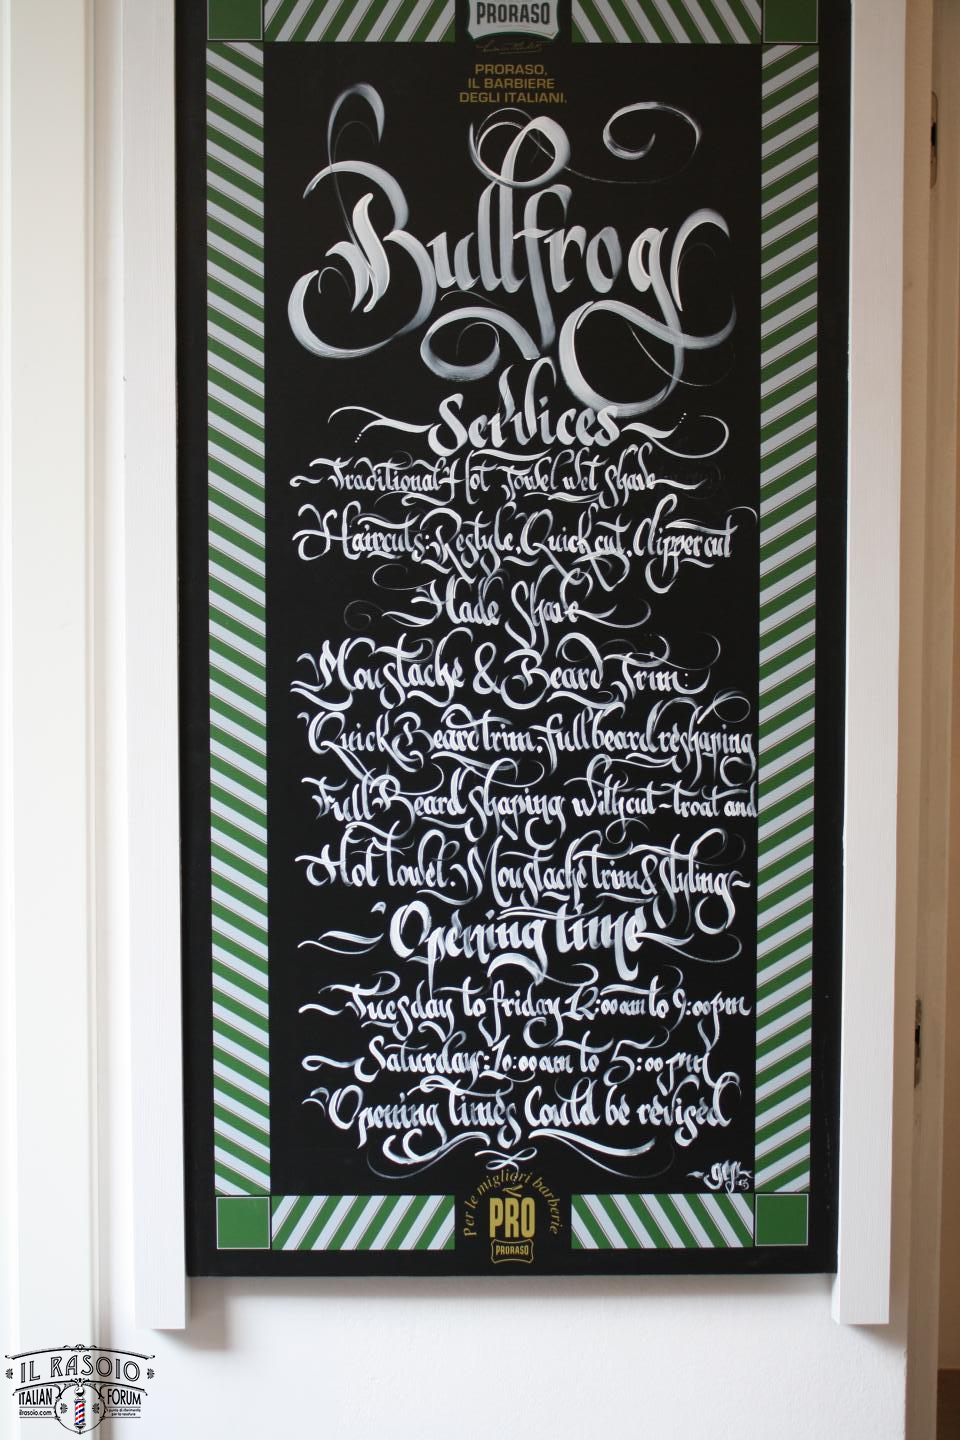 PRORASO
PRORASO,
IL BARBIERE
DEGLI ITALIANI.
Bullfrog
Services
Traditional Hot Towel wet Shave
Haircuts: Restyle, Quick cut, Clipper cut
Hade Shave
Moustache & Beard Trim:
Quick Beard trim, full beard reshaping
Full Beard Shaping with cut-troat and
Hot towel. Moustache trim & Styling
Opening time
Tuesday to friday 12:00am to 9:00pm
Saturday: 10:00am to 5:00pm
Opening times Could be revised
Per le migliori barberie
PRO
PRORASO
IL RASOIO
ITALIAN FORUM
ilrasoio.com